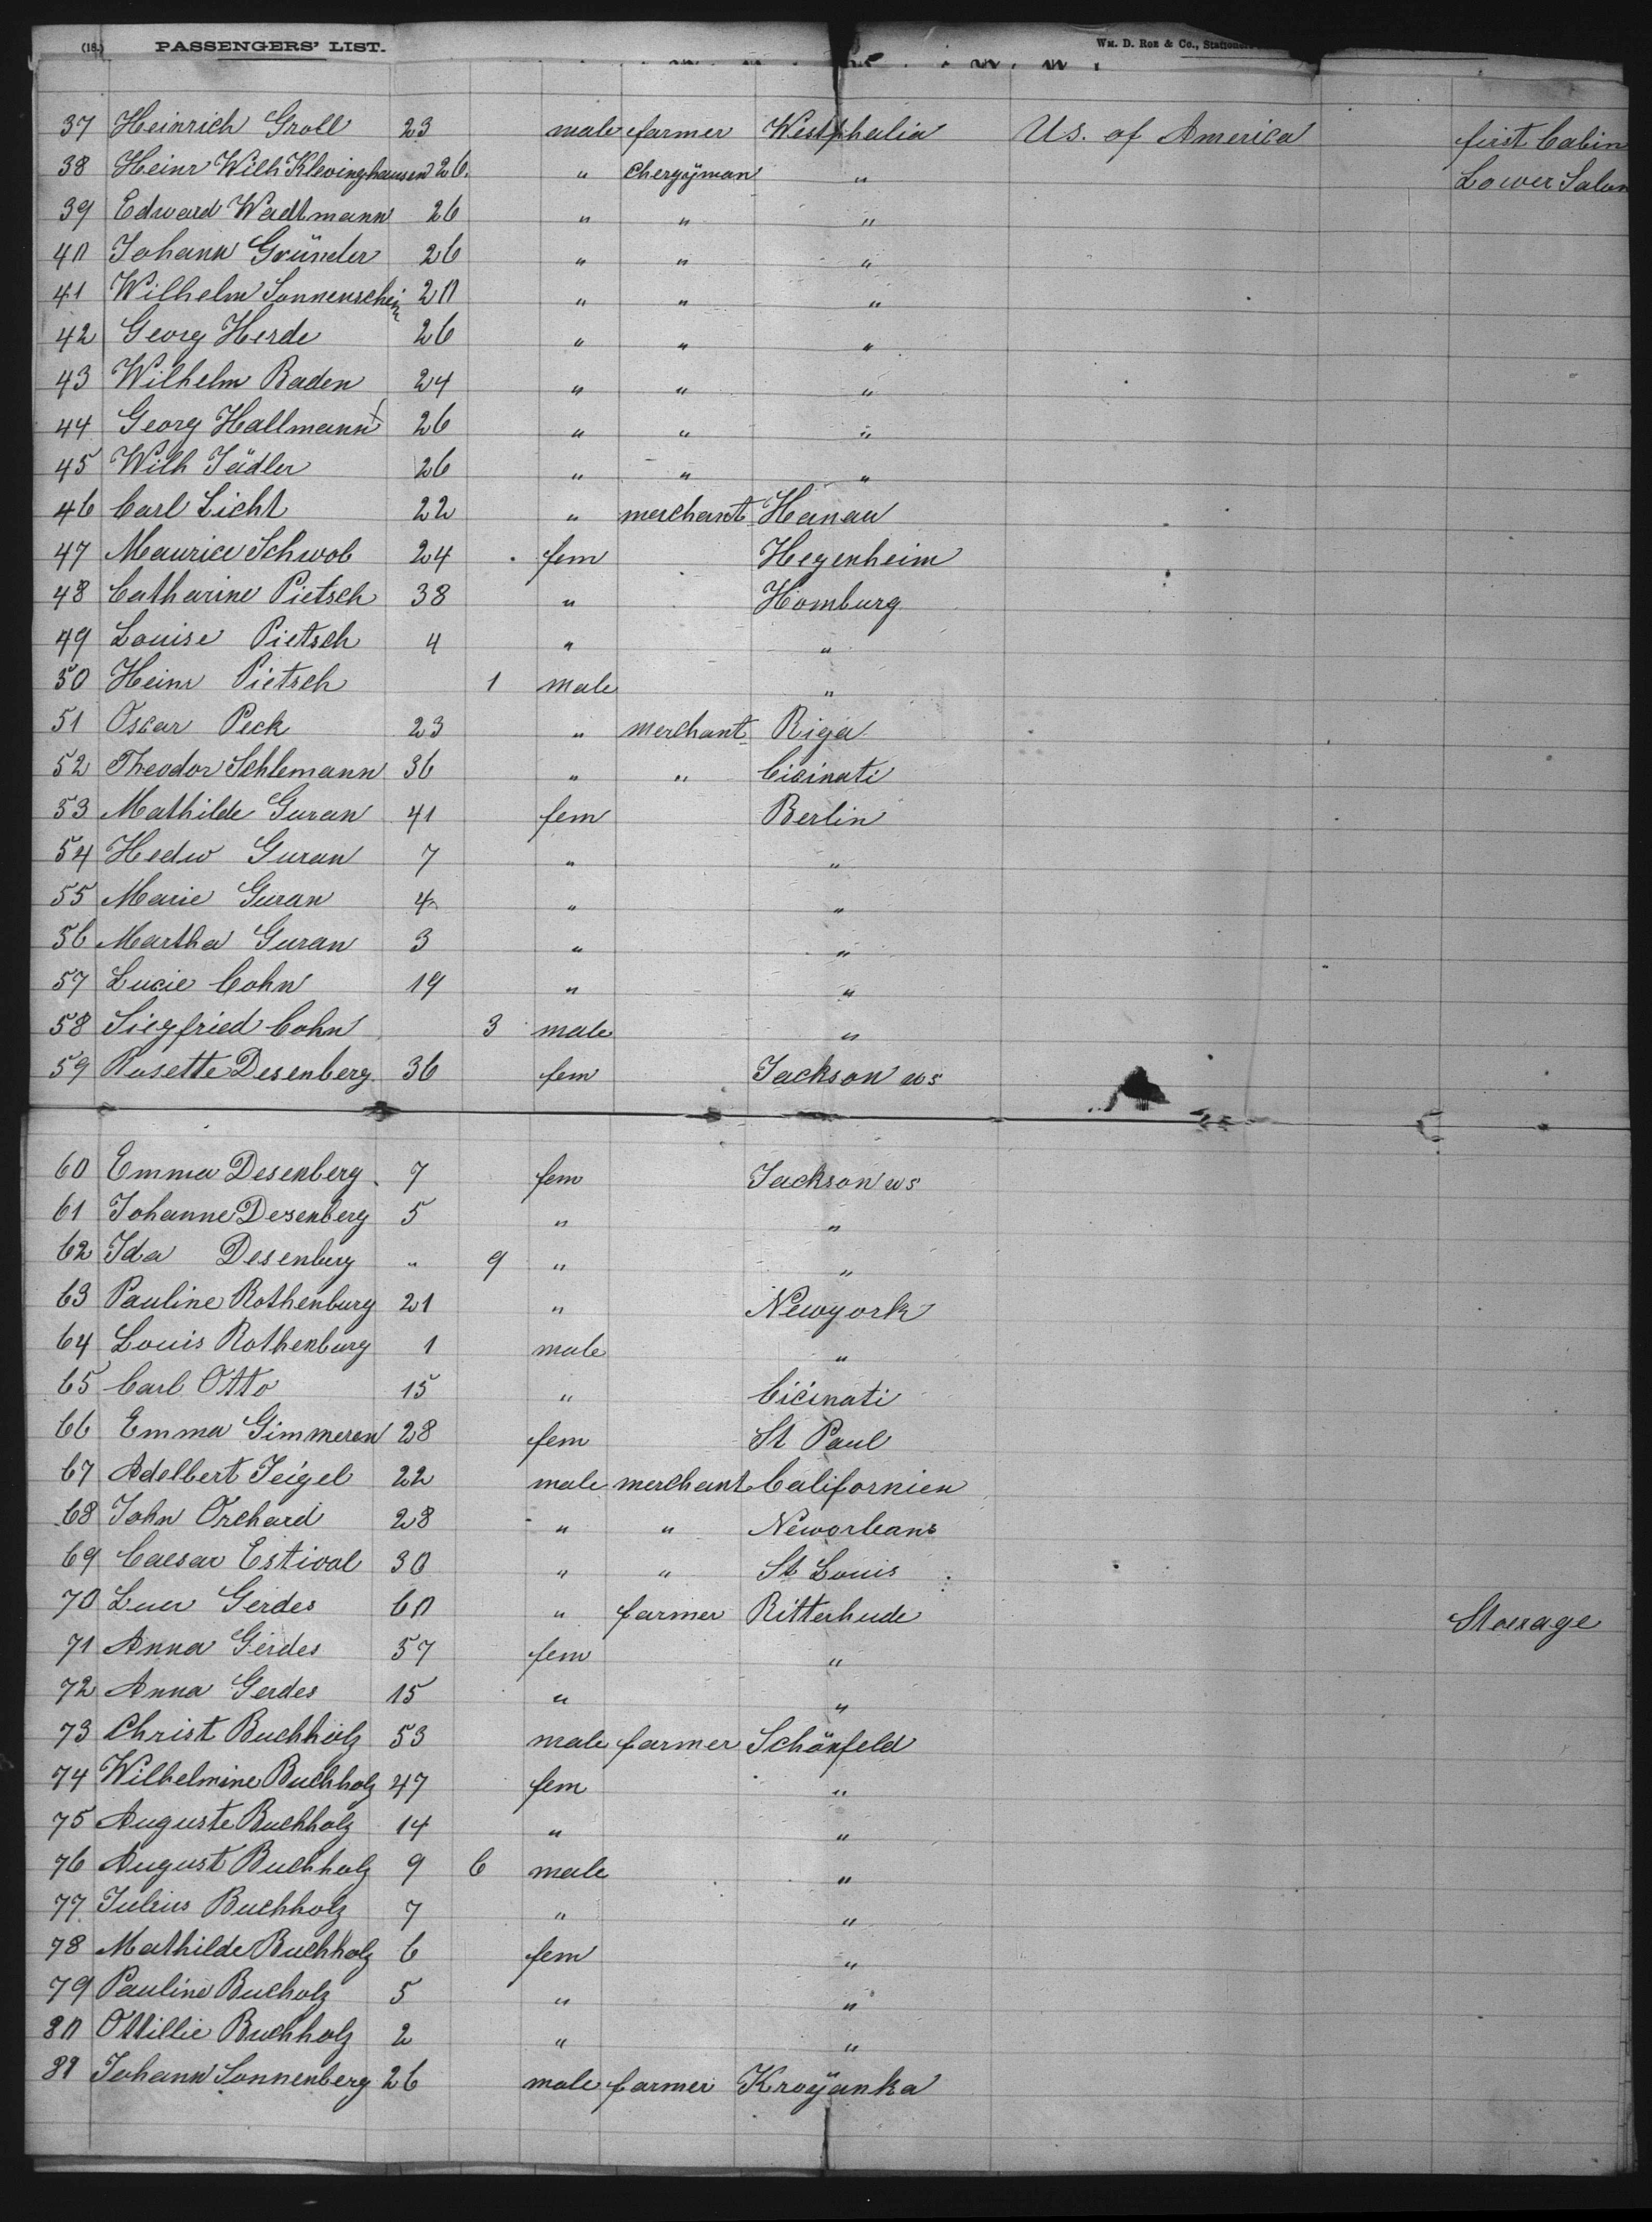 (18.) PASSENGERS' LIST. Wm. D. Roe & Co., Stationers
37 Heinrich Groll 23 male farmer Westphalia U.S. of America first Cabin
38 Heinr Wilh Klevinghausen 26. " Chergÿman " Lower Salon
39 Edward Wadtmann 26 " " "
40 Johann Gründer 26 " " "
41 Wilhelm Sonnenschein 20 " " "
42 Georg Herde 26 " " "
43 Wilhelm Baden 24 " " "
44 Georg Hallmann 26 " " "
45 Wilh Jädler 26 " " "
46 Carl Licht 22 " merchant Hanau
47 Maurice Schwob 24 fem Hegenheim
48 Catharine Pietsch 38 " Homburg
49 Louise Pietsch 4 " "
50 Heinr Pietsch 1 male "
51 Oscar Peck 23 " merchant Riga
52 Theodor Schlemann 36 " " Cicinati
53 Mathilde Guran 41 fem Berlin
54 Hedw Guran 7 " "
55 Marie Guran 4 " "
56 Martha Guran 3 " "
57 Lucie Cohn 19 " "
58 Siegfried Cohn 3 male "
59 Rosette Desenberg 36 fem Jackson us
60 Emma Desenberg 7 fem Jackson us
61 Johanne Desenberg 5 " "
62 Ida Desenberg " 9 " "
63 Pauline Rothenburg 21 " Newyork
64 Louis Rothenburg 1 male "
65 Carl Otto 15 " Cicinati
66 Emma Gimmeren 28 fem St Paul
67 Adelbert Teigel 22 male merchant Californien
68 John Orchard 28 " " Neworleans
69 Caesar Estival 30 " " St Louis
70 Luer Gerdes 60 " farmer Ritterhude Stoerage
71 Anna Gerdes 57 fem "
72 Anna Gerdes 15 " "
73 Christ Buchholz 53 male farmer Schönfeld
74 Wilhelmine Buchholz 47 fem "
75 Auguste Buchholz 14 " "
76 August Buchholz 9 6 male "
77 Julius Buchholz 7 " "
78 Mathilde Buchholz 6 fem "
79 Pauline Bucholz 5 " "
80 Ottillie Buchholz 2 " "
81 Johann Sonnenberg 26 male farmer Kroÿanka